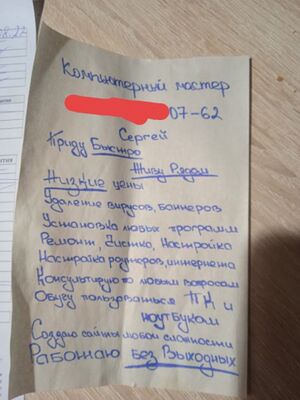 Компьютерный мастер
07-62
Сергей
Приду Быстро
Живу Рядом
Низкие цены
Удаление вирусов, баннеров
Установка любых программ
Ремонт, Чистка, Настройка
Настройка роутеров, интернета
Консультирую по любым вопросам
Обучу пользоваться ПК и
ноутбуком
Создаю сайты любой сложности
Работаю Без Выходных